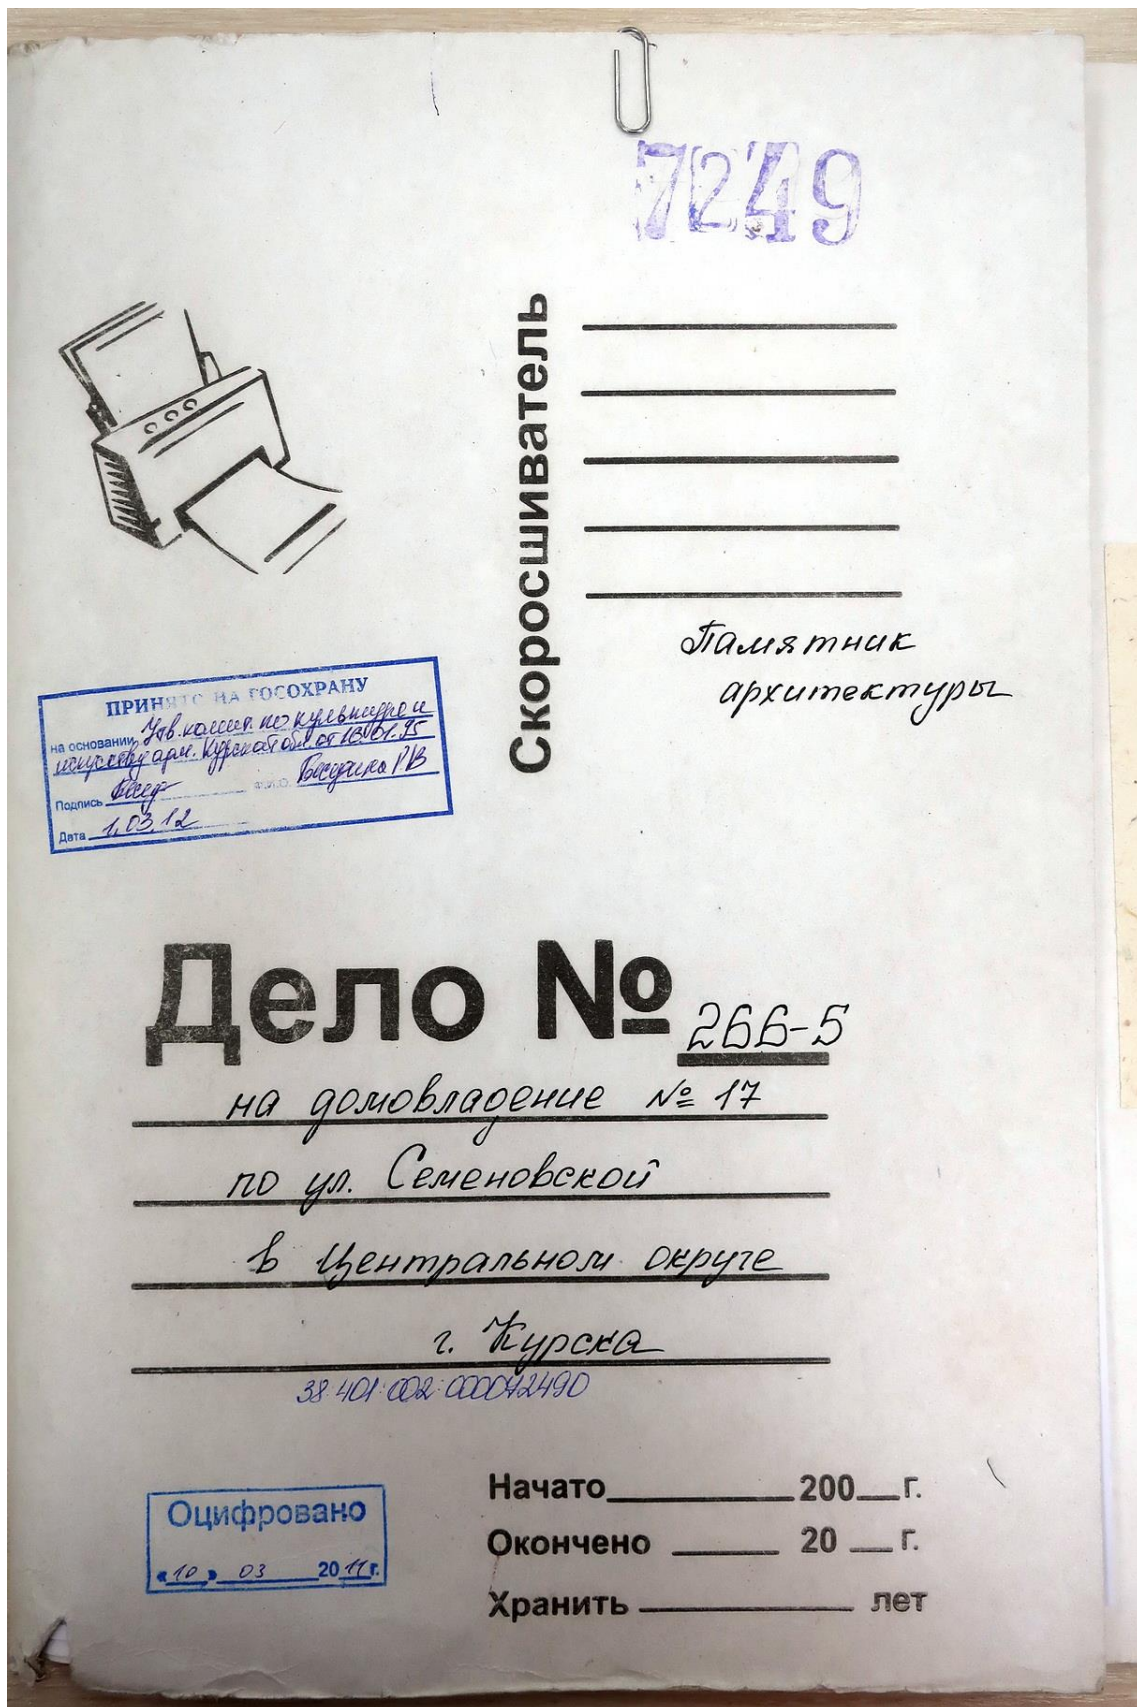 7249
Скоросшиватель
Памятник
архитектуры
ПРИНЯТО НА ГОСОХРАНУ
на основании Утв. комит. по культуре и
искусству адм. Курской обл. от 16.01.95
Подпись Ф.И.О. РВ
Дата 1.03.12
Дело № 266-5
на домовладение № 17
по ул. Семеновской
в Центральном округе
г. Курска
38:401:002:000072490
Начато 200 г.
Окончено 20 г.
Хранить лет
Оцифровано
«10» 03 2011г.